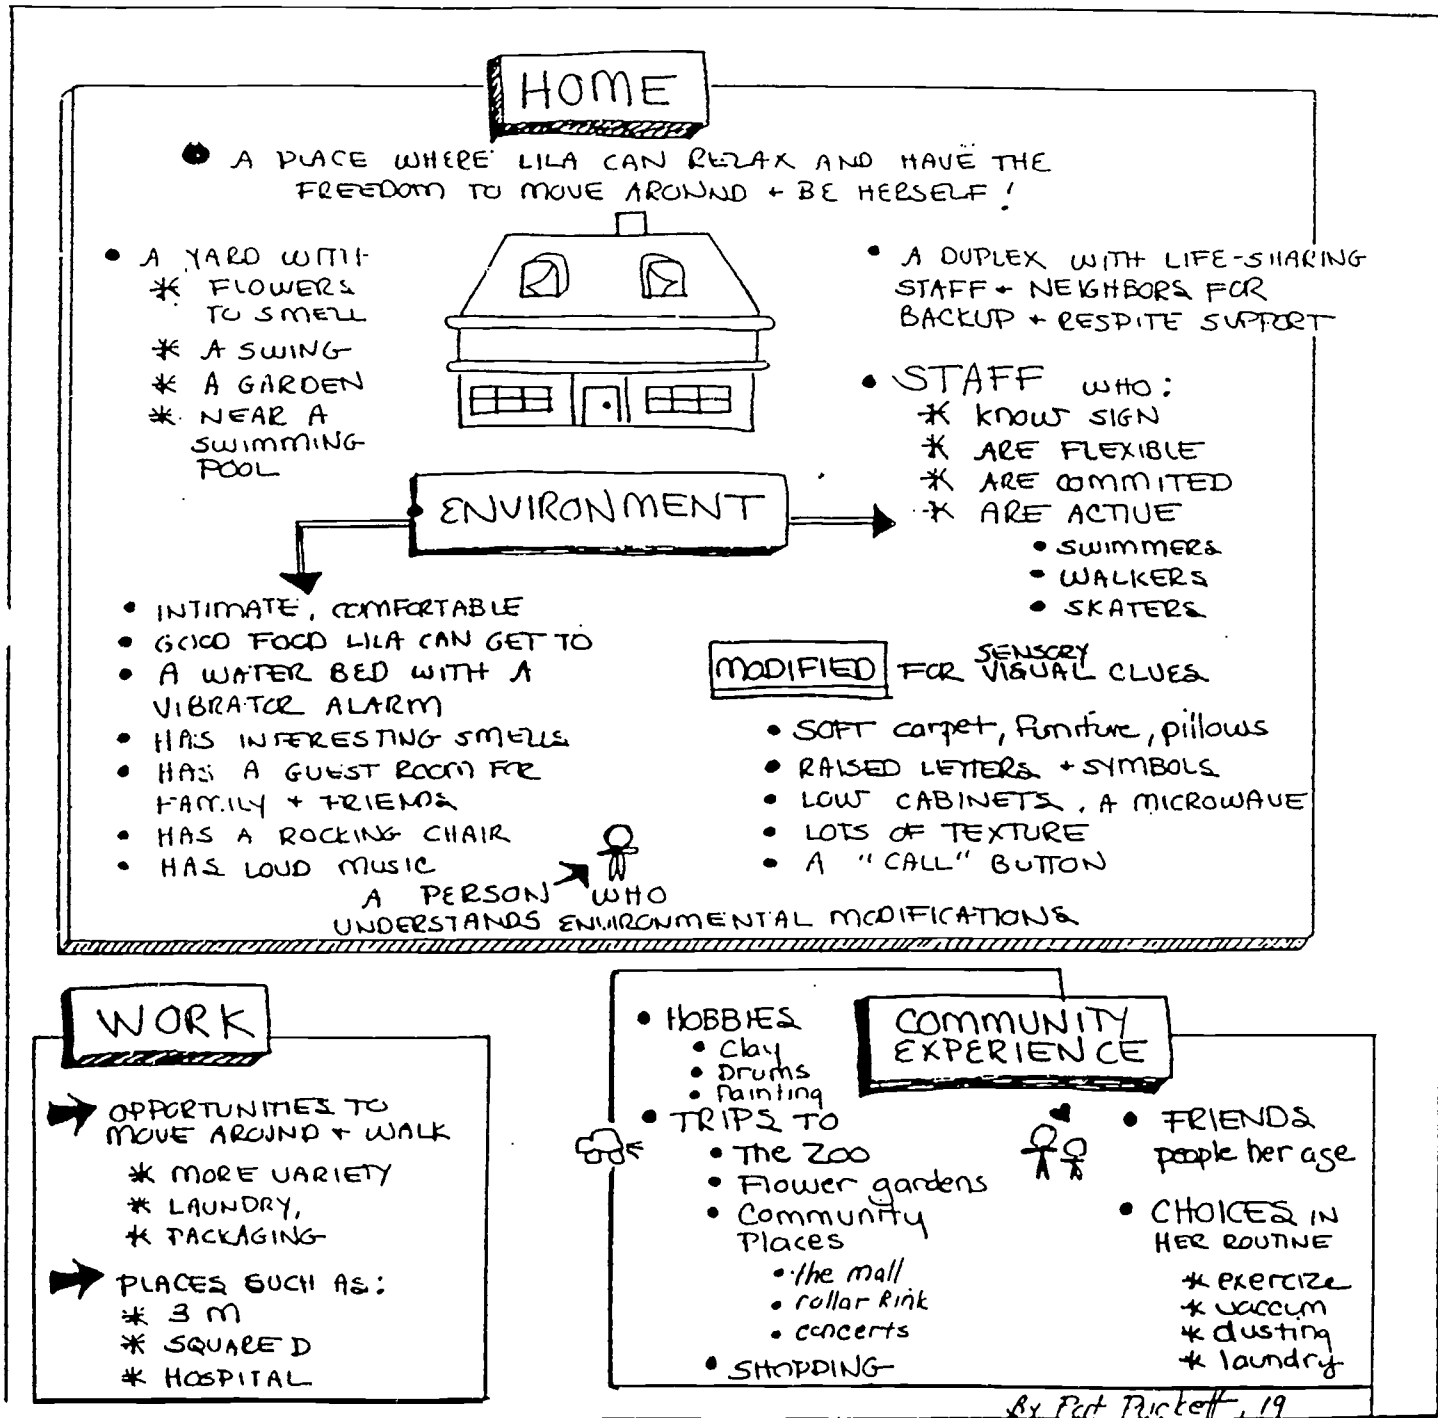 HOME
● A PLACE WHERE LILA CAN RELAX AND HAVE THE
FREEDOM TO MOVE AROUND + BE HERSELF!
• A YARD WITH
* FLOWERS
TO SMELL
* A SWING
* A GARDEN
* NEAR A
SWIMMING
POOL
• A DUPLEX WITH LIFE-SHARING
STAFF + NEIGHBORS FOR
BACKUP + RESPITE SUPPORT
• STAFF WHO:
* KNOW SIGN
* ARE FLEXIBLE
* ARE COMMITED
* ARE ACTIVE
• SWIMMERS
• WALKERS
• SKATERS
• ENVIRONMENT
• INTIMATE, COMFORTABLE
• GOOD FOOD LILA CAN GET TO
• A WATER BED WITH A
VIBRATOR ALARM
• HAS INTERESTING SMELLS
• HAS A GUEST ROOM FOR
FAMILY + FRIENDS
• HAS A ROCKING CHAIR
• HAS LOUD MUSIC
MODIFIED FOR SENSORY VISUAL CLUES
• SOFT carpet, furniture, pillows
• RAISED LETTERS + SYMBOLS
• LOW CABINETS, A MICROWAVE
• LOTS OF TEXTURE
• A "CALL" BUTTON
A PERSON WHO
UNDERSTANDS ENVIRONMENTAL MODIFICATIONS
WORK
OPPORTUNITIES TO
MOVE AROUND + WALK
* MORE VARIETY
* LAUNDRY,
* PACKAGING
PLACES SUCH AS:
* 3 M
* SQUARE D
* HOSPITAL
COMMUNITY
EXPERIENCE
• HOBBIES
• Clay
• Drums
• Painting
• TRIPS TO
• The Zoo
• Flower gardens
• Community
Places
• the mall
• rollar Rink
• concerts
• SHOPPING
• FRIENDS
people her age
• CHOICES IN
HER ROUTINE
* exercize
* vaccum
* dusting
* laundry
By Pat Puckett, 19